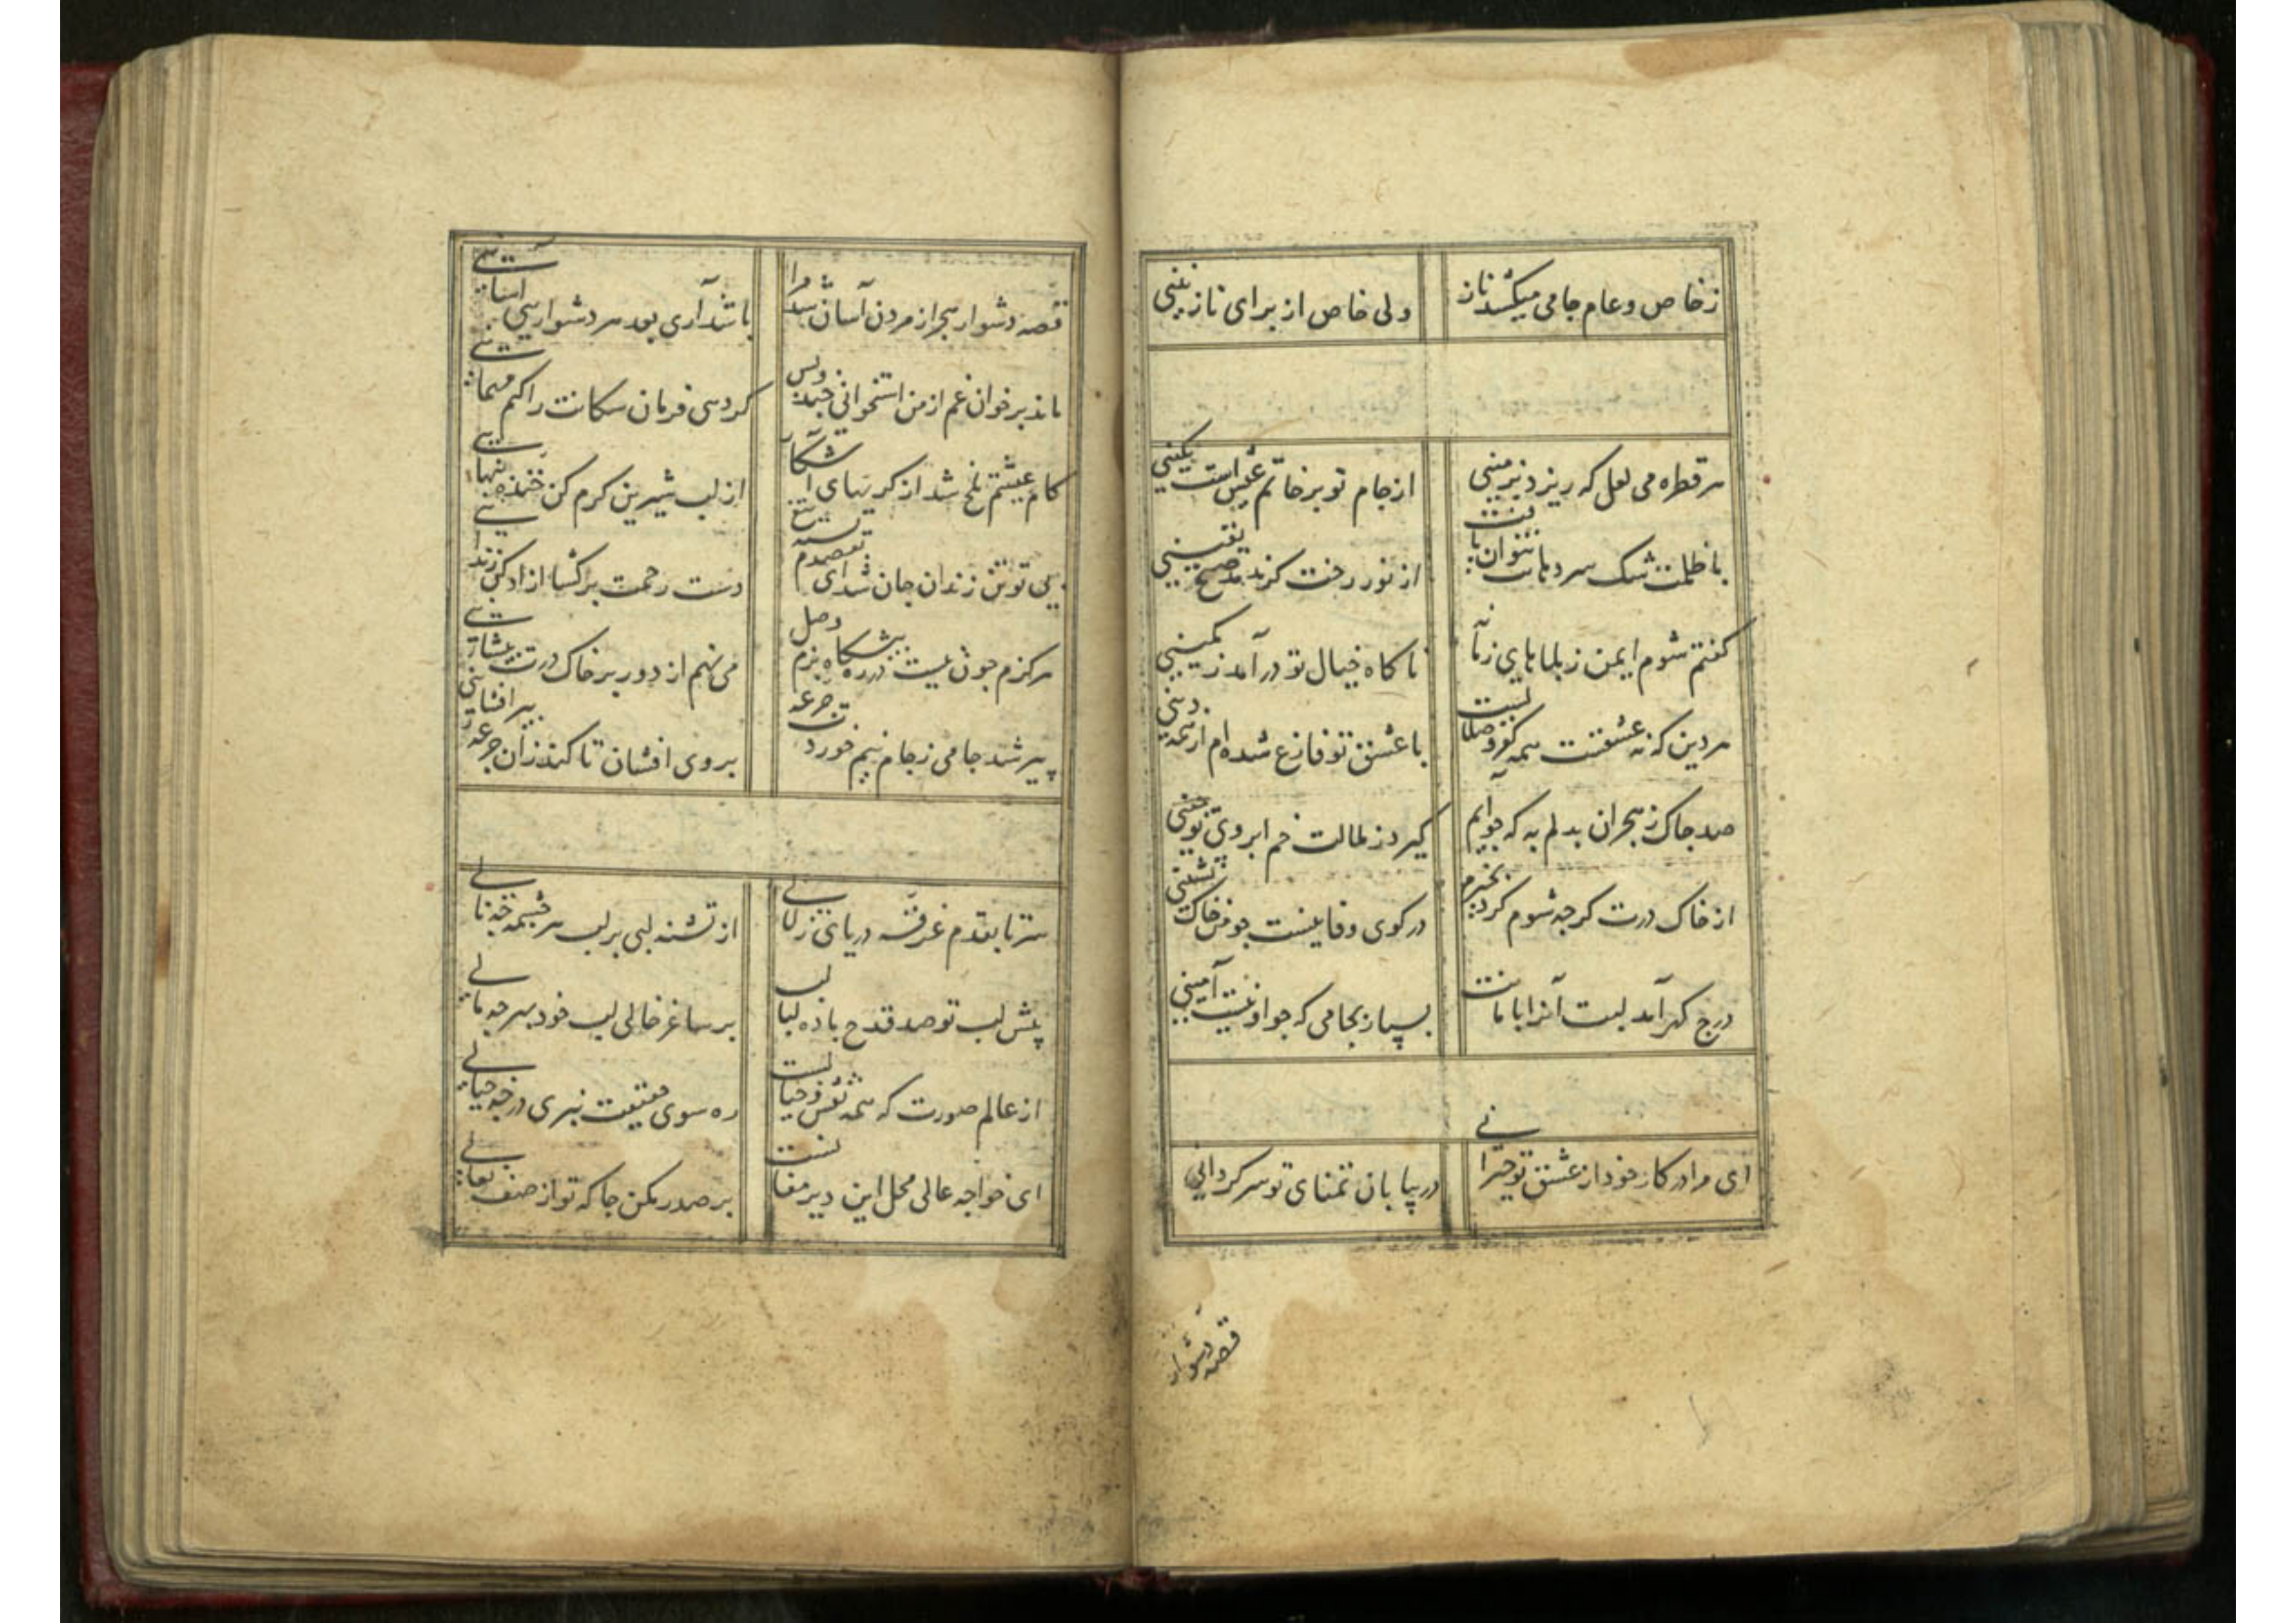 ز خاص و عام جامی میکشد ناز ولی خاص از برای نازنینی
هر قطره می لعل که ریزد بزمینی از جام تو بر خاتم عیش است نگینی
با ظلمت شک سر دهانت نتوان یافت از نور رخت گر ندمد صبح یقینی
گفتم شوم ایمن ز بلاهای زمانه ناگاه خیال تو درآمد ز کمینی
هر دین که نه عشقت همه کفر و ضلالست با عشق تو فارغ شده‌ام از همه دینی
صد چاک ز هجران بدلم به که چو آیم گیرد ز ملالت خم ابروی تو چینی
از خاک درت گر چه شوم گرد نخیزم در کوی وفا نیست چو من خاک نشینی
درج گهر آمد لبت آنرا بامانت بسپار بجامی که چو او نیست امینی
ای مرا در کار خود از عشق تو حیرانی در بیابان تمنای تو سرگردانی
قصه دشوار
قصه دشوار هجر از مردن آسان شد مرا باشد آری بعد هر دشواریی آسانیی
ماند بر خوان غم از من استخوانی چند و بس کردمی فرمان سگانت را کنم مهمانیی
کام عیشم تلخ شد از گریهای آشکار از لب شیرین کرم کن خنده پنهانیی
بی تو تن زندان جان شد ای دست رحمت برگشا آزاد کن زندانیی
هرگزم چون نیست ره در پیشگاه بزم وصل می نهم از دور بر خاک درت پیشانیی
پیر شد جامی ز جام نیم خورد خود بروی افشان تا کند زان جرعه پیر افشانیی
سر تا بقدم غرقه دریای زلالی از تشنه لبی بر لب سرچشمه چه نالی
پیش لب تو صد قدح باده لبالب بر ساغر خالی لب خود بهر چه مالی
از عالم صورت که همه نقش و خیالست ره سوی حقیقت نبری در چه خیالی
ای خواجه عالی محل این دیر مغانست بر صدر مکن جا که تو از صف نعالی